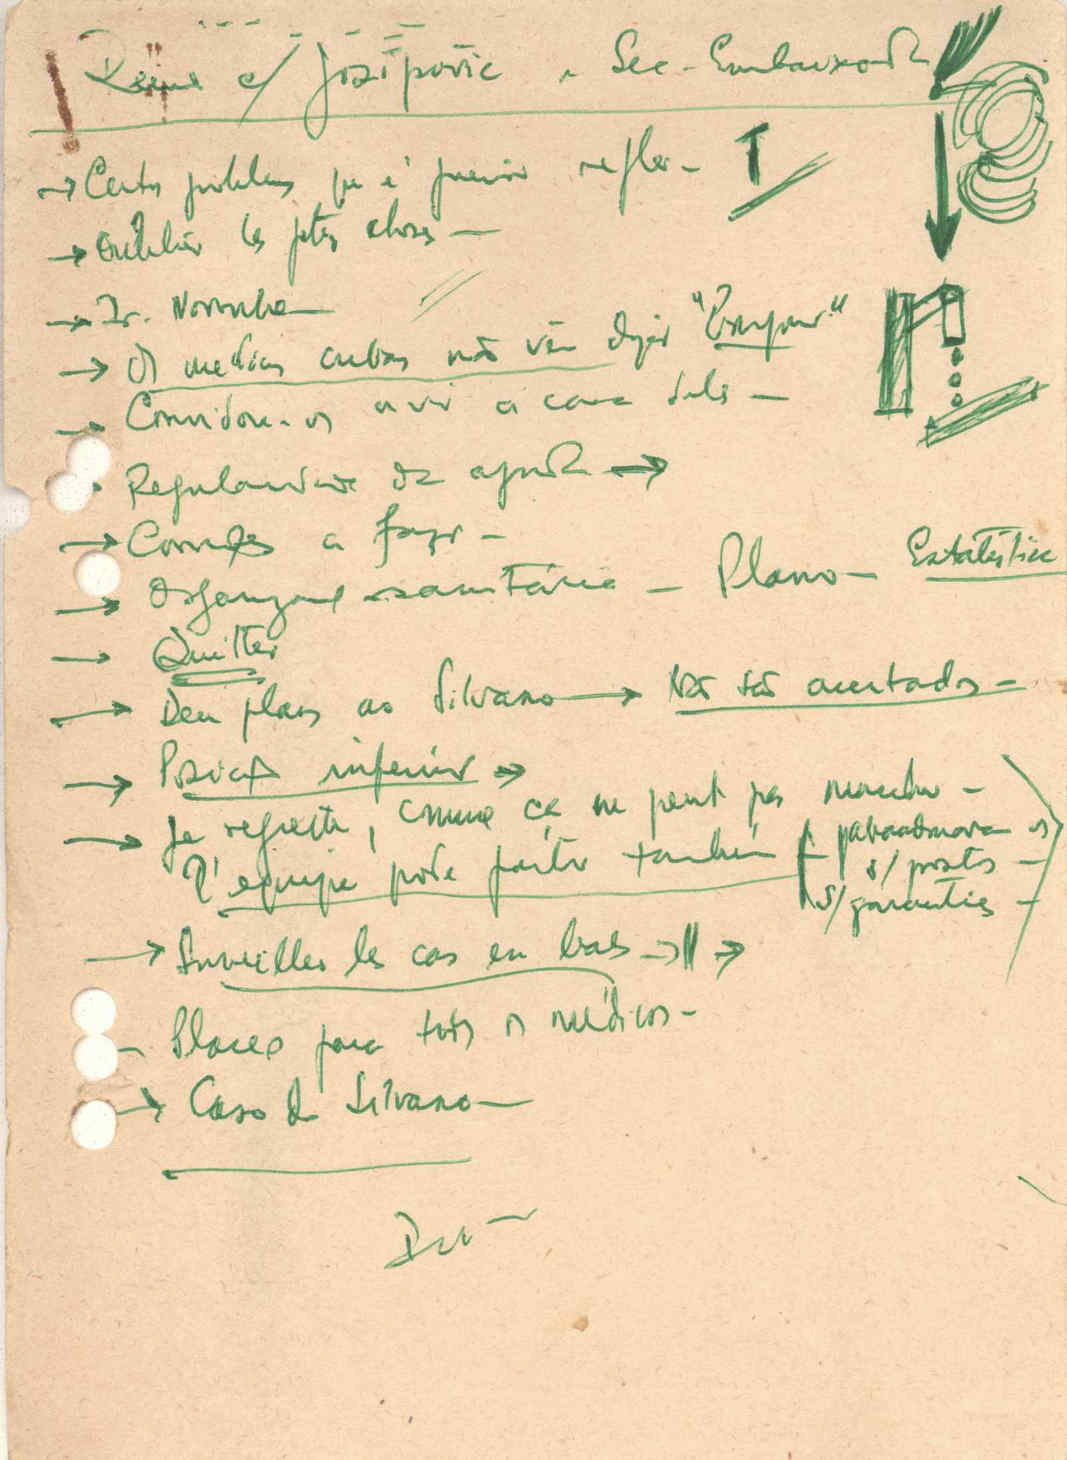 c/ Josipović Sec. Embaixada
→ Certos problemas que é preciso
→ Oublier les ptes choses —
→ Dr. Noronha —
→ Os médicos cubanos não vêm dizer "Bonjour"
→ Convidou-os a vir a casa dele —
Regularidade da ajuda →
→ a fazer —
→ sanitária — Plano — Estatística
→ Quitter
→ Deu planos ao Silvano → Não são acertados —
→ Posição inferior →
→ Je regrette, comme ça ne peut pas marcher —
L'équipe pode partir também
s/ postos —
s/ garanties —
→ Surveiller les cas en bas →
— Places para todos os médicos —
→ Caso do Silvano —